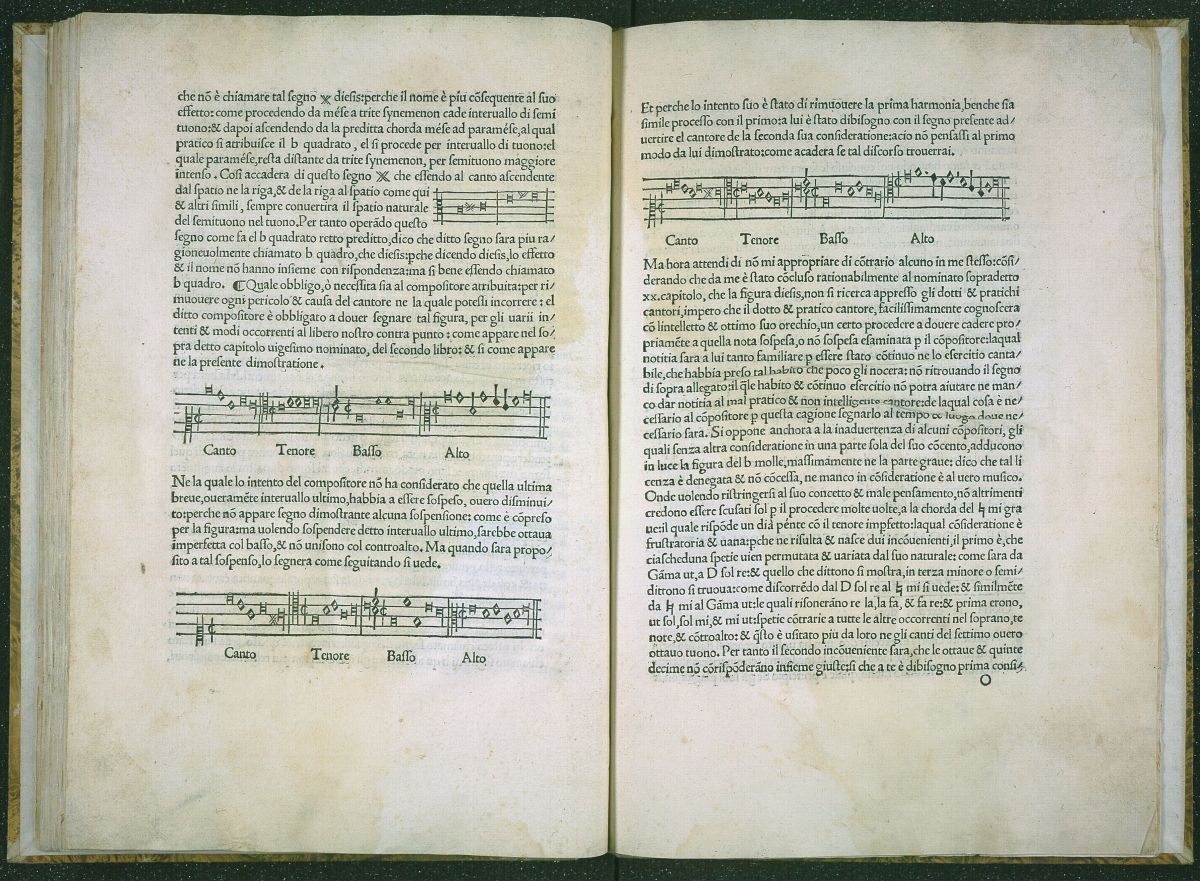 che nō è chiamare tal segno ※ diesis:perche il nome è piu cōsequente al suo
effetto: come procedendo da mése a trite synemenon cade interuallo di semi
tuono:& dapoi ascendendo da la preditta chorda mése ad paramése,al qual
pratico si atribuisce il b quadrato, el si procede per interuallo di tuono:el
quale paramése,resta distante da trite synemenon, per semituono maggiore
intenso. Cosi accadera di questo segno ※ che essendo al canto ascendente
dal spatio ne la riga,& de la riga al spatio come qui
& altri simili, sempre conuertira il spatio naturale
del semituono nel tuono.Per tanto operādo questo
segno come fa el b quadrato retto preditto,dico che ditto segno sara piu ra/
gioneuolmente chiamato b quadro,che diesis:pche dicendo diesis,lo effetto
& il nome nō hanno insieme con rispondenza:ma si bene essendo chiamato
b quadro. ⸿Quale obbligo,ò necessita sia al compositore atribuita:per ri/
muouere ogni pericolo & causa del cantore ne la quale potessi incorrere: el
ditto compositore è obbligato a douer segnare tal figura, per gli uarii in/
tenti & modi occorrenti al libero nostro contra punto: come appare nel so/
pra detto capitolo uigesimo nominato, del secondo libro: & si come appare
ne la presente dimostratione.
Canto Tenore Basso Alto
Ne la quale lo intento del compositore nō ha considerato che quella ultima
breue,oueramēte interuallo ultimo,habbia a essere sospeso, ouero disminui/
to:perche nō appare segno dimostrante alcuna sospensione: come è cōpreso
per la figura:ma uolendo sospendere detto interuallo ultimo,sarebbe ottaua
imperfetta col basso,& nō unisono col controalto. Ma quando sara propo/
sito a tal sospenso,lo segnera come seguitando si uede.
Canto Tenore Basso Alto
Et perche lo intento suo è stato di rimuouere la prima harmonia,benche sia
simile processo con il primo:a lui è stato dibisogno con il segno presente ad/
uertire el cantore de la seconda sua consideratione:acio nō pensassi al primo
modo da lui dimostrato:come acadera se tal discorso trouerrai.
Canto Tenore Basso Alto
Ma hora attendi di nō mi appropriare di cōtrario alcuno in me stesso:cōsi/
derando che da me è stato cōcluso rationabilmente al nominato sopradetto
xx.capitolo, che la figura diesis,non si ricerca appresso gli dotti & pratichi
cantori,impero che il dotto & pratico cantore, facilissimamente cognoscera
cō lintelletto & ottimo suo orechio,un certo procedere a douere cadere pro/
priamēte a quella nota sospesa,o nō sospesa esaminata p il cōpositore:laqual
notitia sara a lui tanto familiare p essere stato cōtinuo ne lo esercitio canta/
bile,che habbia preso tal habito che poco gli nocera: nō ritrouando il segno
di sopra allegato:il q̄le habito & cōtinuo esercitio nō potra aiutare ne man/
co dar notitia al mal pratico & non intelligente cantore:de laqual cosa è ne/
cessario al cōpositore p questa cagione segnarlo al tempo & luogo doue ne/
cessario sara. Si oppone anchora a la inaduertenza di alcuni cōpositori, gli
quali senza altra consideratione in una parte sola del suo cōcento,adducono
in luce la figura del b molle,massimamente ne la parte graue: dico che tal li
cenza è denegata & nō cōcessa, ne manco in cōsideratione è al uero musico.
Onde uolendo ristringersi al suo concetto & male pensamento,nō altrimenti
credono essere scusati sol p il procedere molte uolte,a la chorda del ♮ mi gra
ue:il quale rispōde un dia pente cō il tenore impfetto:laqual cōsideratione è
frustratoria & uana:pche ne risulta & nasce dui incōuenienti,il primo è,che
ciascheduna spetie uien permutata & uariata dal suo naturale: come sara da
Gāma ut,a D sol re:& quello che dittono si mostra,in terza minore o semi/
dittono si truoua:come discorrēdo dal D sol re al ♮ mi si uede:& similmēte
da ♮ mi al Gāma ut:le quali risonerāno re la,la fa, & fa re:& prima erono,
ut sol,sol mi,& mi ut:spetie cōtrarie a tutte le altre occorrenti nel soprano,te
nore,& cōtroalto: & q̄sto è usitato piu da loro ne gli canti del settimo ouero
ottauo tuono. Per tanto il secondo incōueniente sara,che le ottaue & quinte
decime nō cōrispōderāno insieme giuste:si che a te è dibisogno prima consi/
O